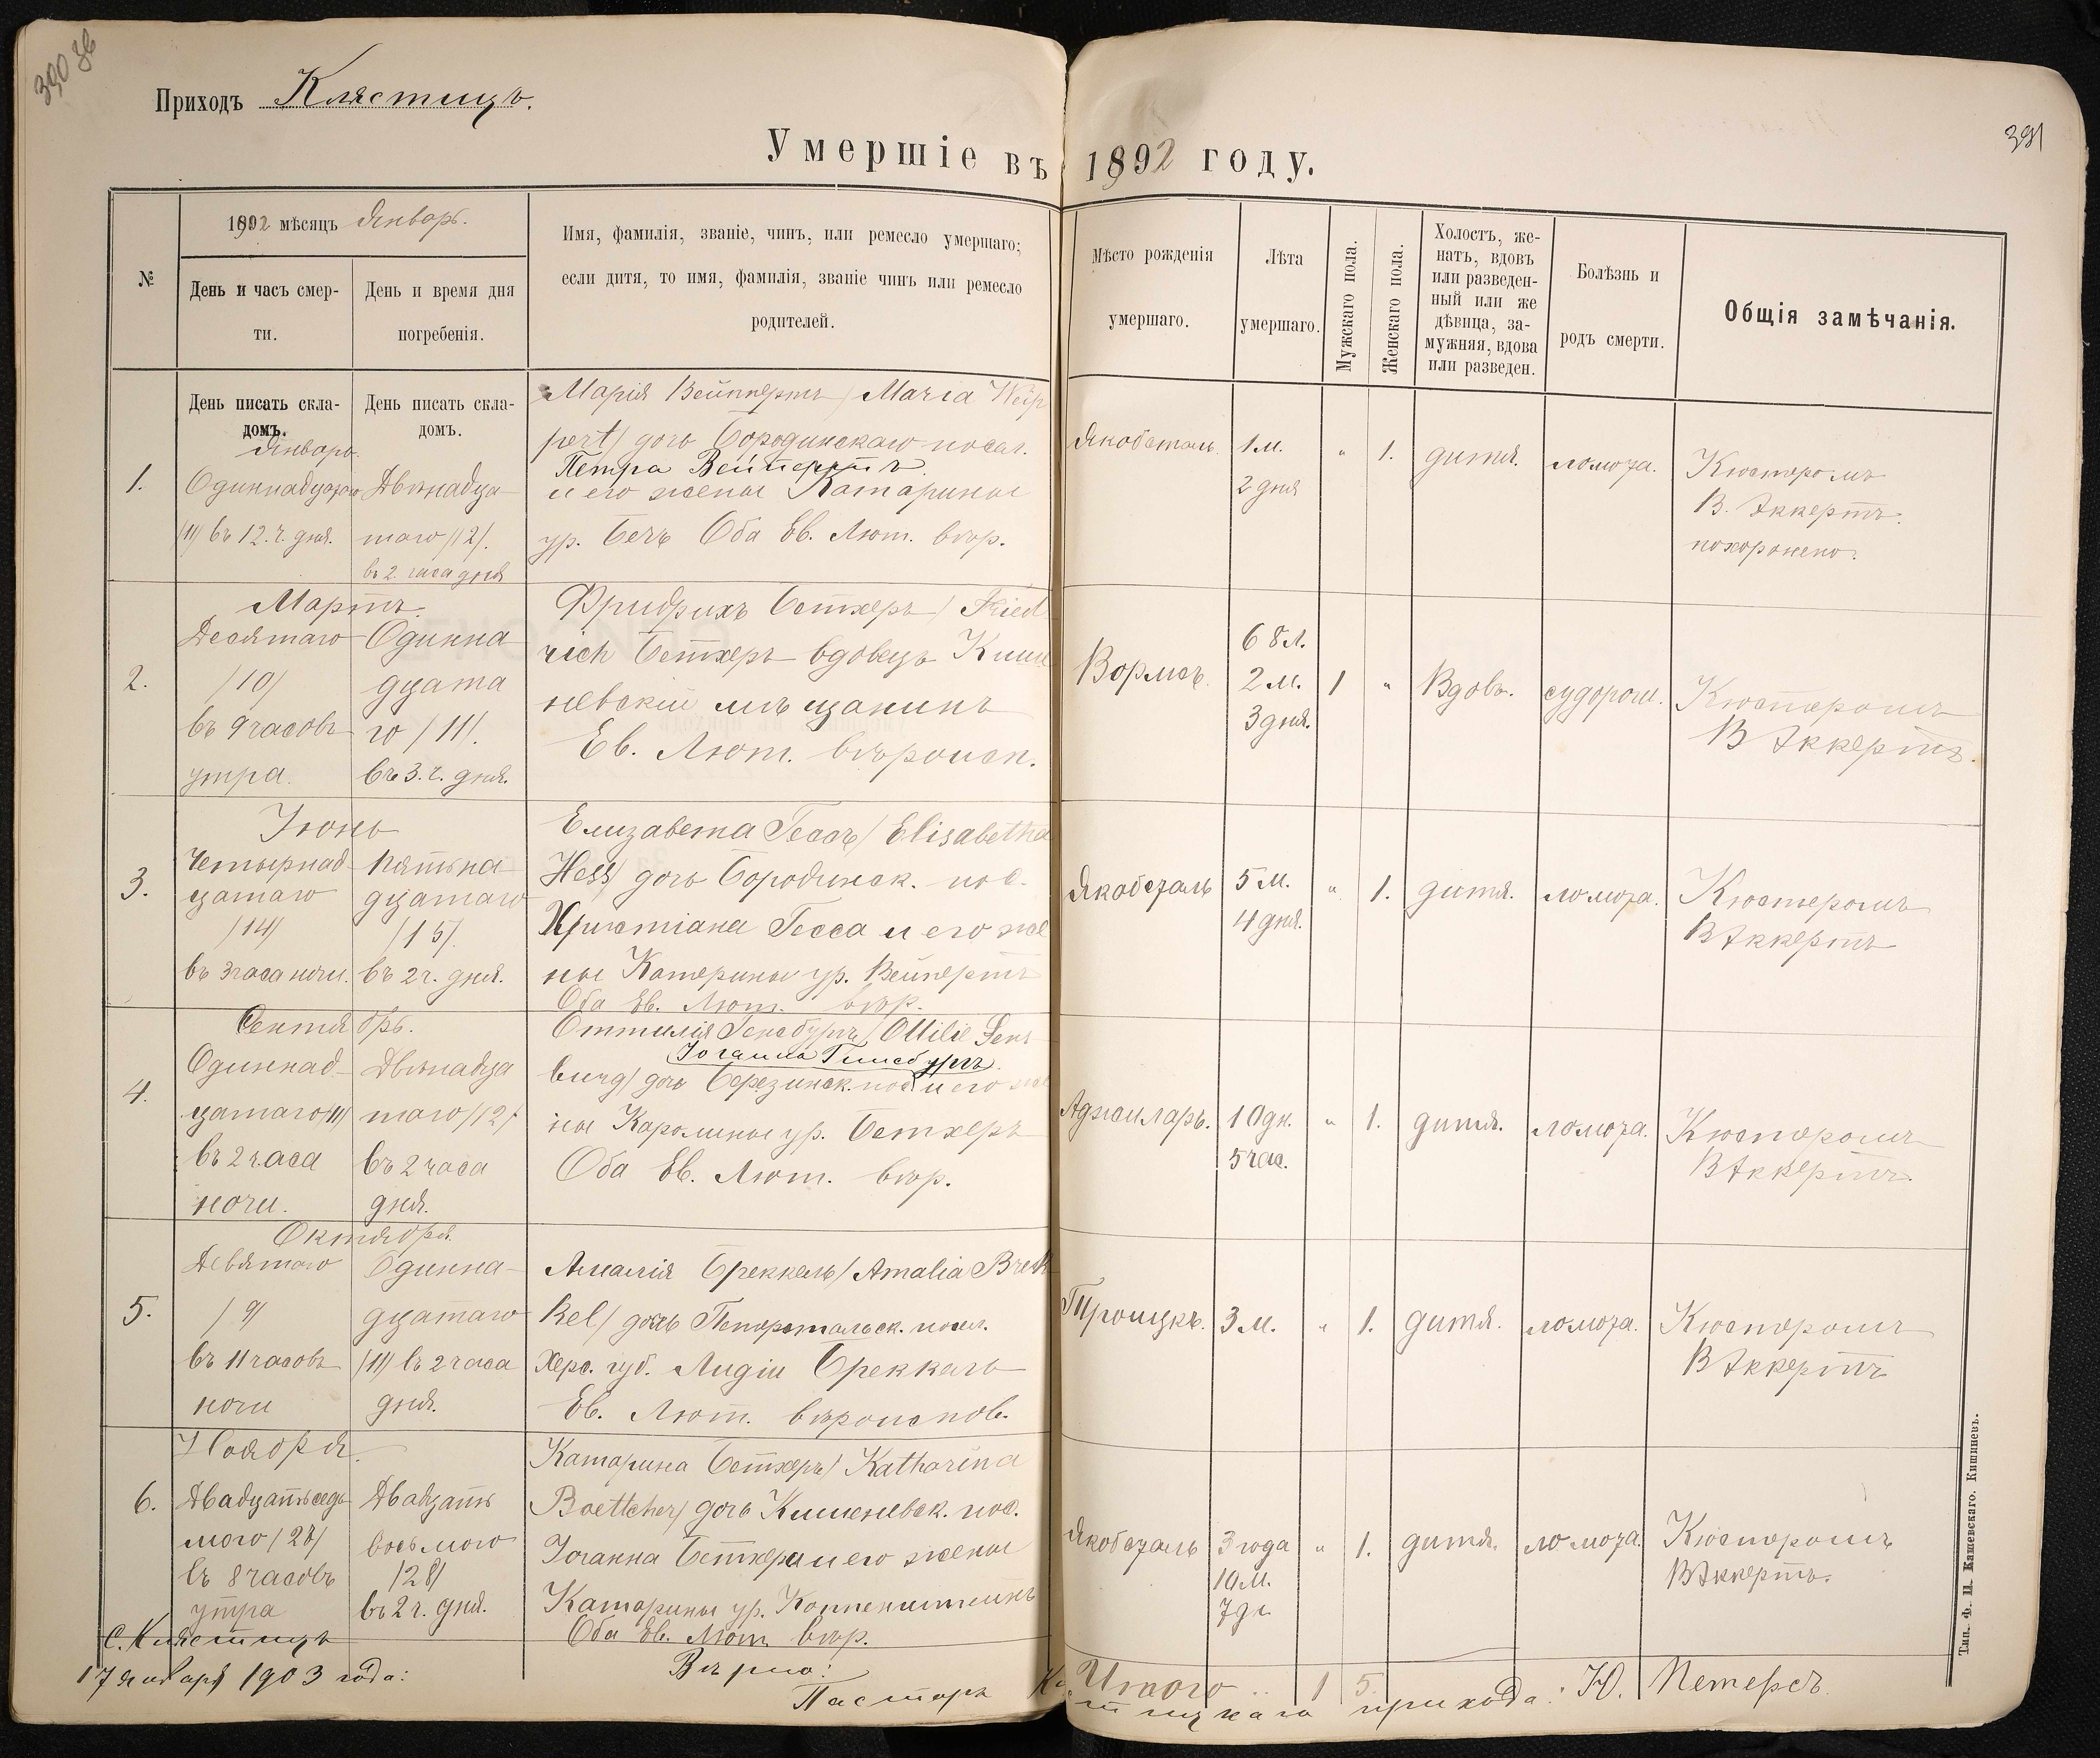 390 об
Приходъ Клястицъ.
Умершіе въ 1892 году.
391
№
1892 мѣсяцъ Январь.
День и часъ смерти.
День и время дня погребенія.
Имя, фамилія, званіе, чинъ, или ремесло умершаго;
если дитя, то имя, фамилія, званіе чинъ или ремесло
родителей.
Мѣсто рожденія
умершаго.
Лѣта
умершаго.
Мужскаго пола.
Женскаго пола.
Холостъ, же-
натъ, вдовъ
или разведен-
ный или же
дѣвица, за-
мужняя, вдова
или разведен.
Болѣзнь и
родъ смерти.
Общія замѣчанія.
День писать скла-
домъ.
День писать скла-
домъ.
1.
Январь.
Одиннадцатаго
/11/ въ 12. ч. дня.
Двѣнадца-
таго /12/.
въ 2. часа дня
Марія Вейппертъ / Maria Weip
pert/ дочь Бородинскаго посел.
Петра Вейпертъ
и его жены Катарины
ур. Бечъ Оба Ев. Лют. вѣр.
Якобсталь.
1 м.
2 дня
" 1.
дитя.
ломота.
Кюстеромъ
В. Эккертъ.
похоронено.
2.
Мартъ.
Десятаго
/10/
въ 9 часовъ
утра.
Одинна
дцата
го /11/.
въ 3. ч. дня.
Фридрихъ Бетхеръ / Fried
rich Бетхеръ вдовецъ Киши
невскій мѣщанинъ
Ев. Лют. вѣроисп.
Вормсъ.
68 л.
2 м.
3 дня.
1 "
Вдовъ.
судороги.
Кюстеромъ
В Эккертъ.
3.
Іюнь
Четырнад-
цатаго
/14/
въ 3 часа ночи.
Пятьна
дцатаго
/15/.
въ 2 ч. дня.
Елизавета Гессъ / Elisabetha
Hess/ дочь Бородинск. пос.
Христіана Гесса и его же
ны Катерины ур. Вейпертъ
Оба Ев. Лют. вѣр.
Якобсталь
5 м.
4 дня.
" 1.
дитя.
ломота.
Кюстеромъ
В Эккертъ
4.
Сентябрь.
Одиннад-
цатаго /11/
въ 2 часа
ночи.
Двѣнадца
таго /12/
въ 2 часа
дня.
Оттилія / Ottilie
дочь Березинск. пос. и его же
ны Каролины ур. Бетхеръ
Оба Ев. Лют. вѣр.
Аджиларъ.
10 дн.
5 час.
" 1.
дитя.
ломота.
Кюстеромъ
В Эккертъ.
5.
Октября.
Девятаго
/9/
въ 11 часовъ
ночи
Одинна-
дцатаго
/11/ въ 2 часа
дня.
Амалія Бреккель / Amalia Brek
kel/ дочь посел.
Херс. губ. Лидіи Бреккель
Ев. Лют. вѣроиспов.
Троицкъ.
3 м.
" 1.
дитя.
ломота.
Кюстеромъ
В Эккертъ
6.
Ноября.
Двадцатьседь
маго /27/
въ 8 часовъ
утра
Двадцать
восьмого
/28/
въ 2 ч. дня.
Катарина Бетхеръ / Katharina
Boettcher/ дочь Кишеневск. пос.
Іоганна Бетхера и его жены
Катарины ур. Коппенштейнъ
Оба Ев. Лют вѣр.
Якобсталь
3 года
10 м.
7 дн
" 1.
дитя.
ломота.
Кюстеромъ
В Эккертъ.
Итого .. 1 5.
с. Клястицъ
17 января 1903 года:
Вѣрно:
Пасторъ Клястицкаго прихода: Ю. Петерсъ.
Тип. Ф. П. Кашевскаго. Кишиневъ.